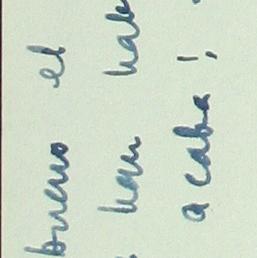 bueno el
han habe
acaba!,